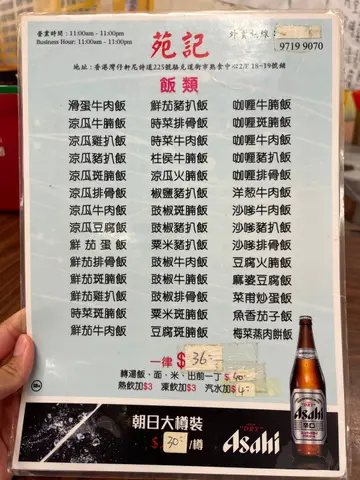 營業時間：11:00am - 11:00pm
Business Hour: 11:00am - 11:00pm
苑記
外賣熱線：
9719 9070
地址：香港灣仔軒尼詩道225號駱克道街市熟食中心2/F 18-19號鋪
飯類
滑蛋牛肉飯 鮮茄豬扒飯 咖喱牛腩飯
涼瓜牛腩飯 時菜排骨飯 咖喱斑腩飯
涼瓜雞扒飯 時菜豬扒飯 咖喱牛肉飯
涼瓜豬扒飯 柱侯牛腩飯 咖喱豬扒飯
涼瓜斑腩飯 涼瓜火腩飯 咖喱排骨飯
涼瓜排骨飯 椒鹽豬扒飯 洋葱牛肉飯
涼瓜牛肉飯 豉椒斑腩飯 沙嗲牛肉飯
涼瓜豆腐飯 豉椒雞扒飯 沙嗲斑腩飯
鮮茄蛋飯 粟米豬扒飯 沙嗲排骨飯
鮮茄排骨飯 豉椒牛腩飯 豆腐火腩飯
鮮茄斑腩飯 豉椒牛肉飯 麻婆豆腐飯
鮮茄雞扒飯 豉椒排骨飯 菜甫炒蛋飯
時菜斑腩飯 粟米斑腩飯 魚香茄子飯
鮮茄牛肉飯 豆腐斑腩飯 梅菜蒸肉餅飯
一律 $ 36-
轉湯飯、面、米、出前一丁 $ 40
熱飲加$3 凍飲加$3 汽水加$ 4-
朝日大樽裝
$ 30- /樽
Asahi
Asahi
辛口